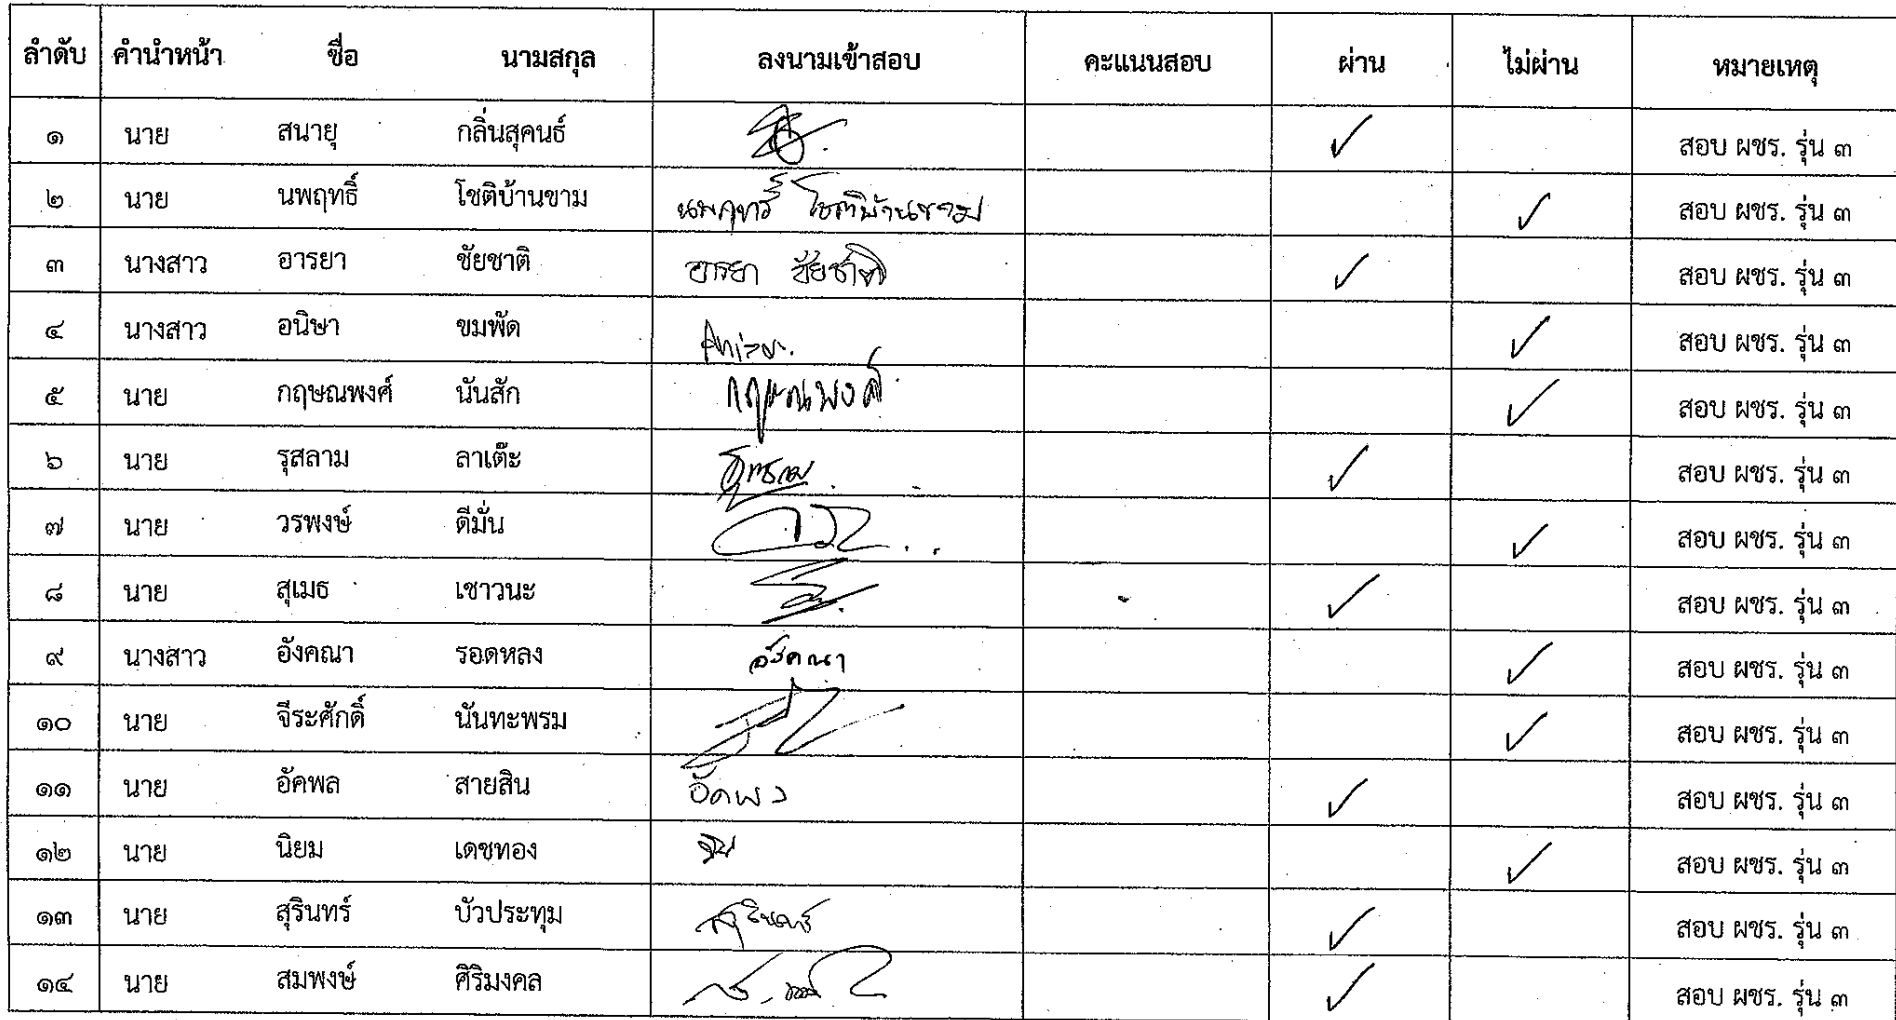 ลำดับ คำนำหน้า ชื่อ นามสกุล ลงนามเข้าสอบ คะแนนสอบ ผ่าน ไม่ผ่าน หมายเหตุ
๑ นาย สนายุ กลิ่นสุคนธ์ ✓ สอบ ผชร. รุ่น ๓
๒ นาย นพฤทธิ์ โชติบ้านขาม นพฤทธิ์ โชติบ้านขาม ✓ สอบ ผชร. รุ่น ๓
๓ นางสาว อารยา ชัยชาติ อารยา ชัยชาติ ✓ สอบ ผชร. รุ่น ๓
๔ นางสาว อนิษา ขมพัด ✓ สอบ ผชร. รุ่น ๓
๕ นาย กฤษณพงศ์ นันสัก กฤษณพงศ์ ✓ สอบ ผชร. รุ่น ๓
๖ นาย รุสลาม ลาเต๊ะ ✓ สอบ ผชร. รุ่น ๓
๗ นาย วรพงษ์ ดีมั่น ✓ สอบ ผชร. รุ่น ๓
๘ นาย สุเมธ เชาวนะ ✓ สอบ ผชร. รุ่น ๓
๙ นางสาว อังคณา รอดหลง อังคณา ✓ สอบ ผชร. รุ่น ๓
๑๐ นาย จีระศักดิ์ นันทะพรม ✓ สอบ ผชร. รุ่น ๓
๑๑ นาย อัคพล สายสิน อัคพล ✓ สอบ ผชร. รุ่น ๓
๑๒ นาย นิยม เดชทอง ✓ สอบ ผชร. รุ่น ๓
๑๓ นาย สุรินทร์ บัวประทุม สุรินทร์ ✓ สอบ ผชร. รุ่น ๓
๑๔ นาย สมพงษ์ ศิริมงคล ✓ สอบ ผชร. รุ่น ๓